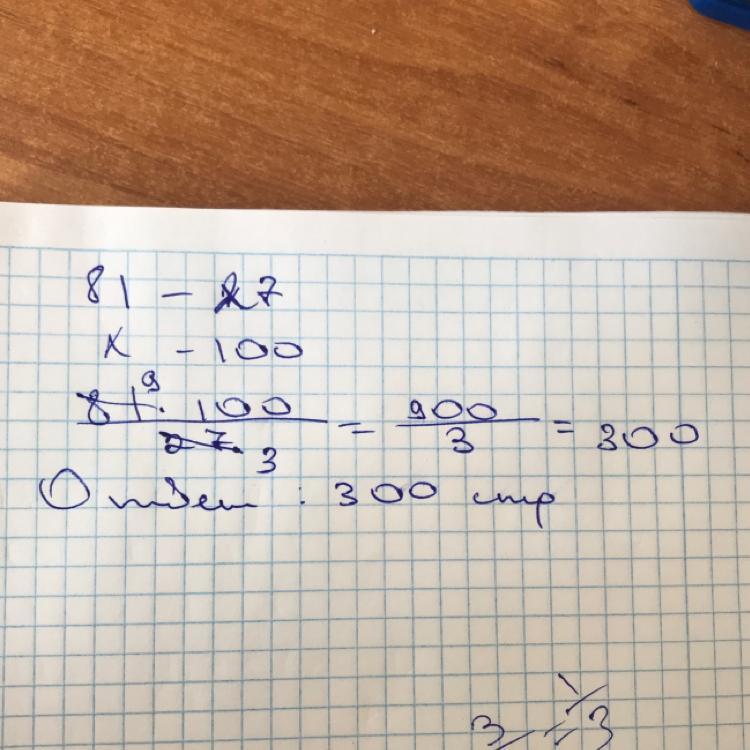 81 – 27
x – 100
81 9 · 100 / 27 3 = 900 / 3 = 300
Ответ : 300 стр